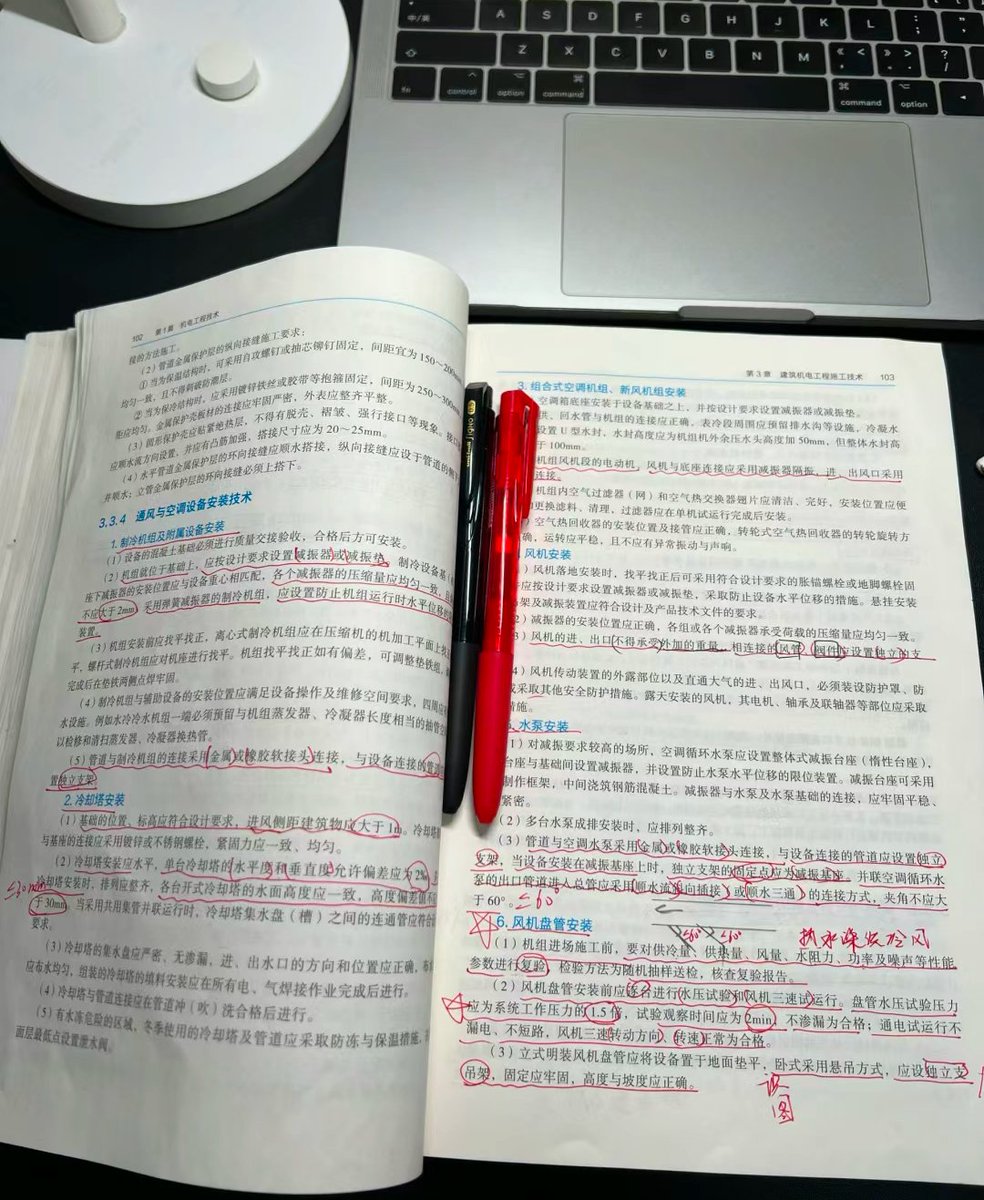 中/英
A
S
D
F
G
H
J
K
L
Z
X
C
V
B
N
M
fn
control
option
command
command
option
102 第1篇 机电工程技术
接的方法施工。
（2）管道金属保护层的纵向接缝施工要求：
① 当为保温结构时，可采用自攻螺钉或抽芯铆钉固定，间距宜为150～200mm
均匀一致，且不得刺破防潮层。
② 当为保冷结构时，应采用镀锌铁丝或胶带等抱箍固定，间距为250～300mm
距应均匀。金属保护壳板材的连接应牢固严密，外表应整齐平整。
（3）圆形保护壳应贴紧绝热层，不得有脱壳、褶皱、强行接口等现象。接口
应顺水流方向设置，并应有凸筋加强，搭接尺寸应为20～25mm。
（4）水平管道金属保护层的环向接缝应顺水搭接，纵向接缝应设于管道的侧
并喷水；立管金属保护层的环向接缝必须上搭下。
3.3.4 通风与空调设备安装技术
1. 制冷机组及附属设备安装
（1）设备的混凝土基础必须进行质量交接验收，合格后方可安装。
（2）机组就位于基础上，应按设计要求设置减振器或减振垫。制冷设备基
座下减振器的安装位置应与设备重心相匹配，各个减振器的压缩量应均匀一致，且
不应大于2mm，采用弹簧减振器的制冷机组，应设置防止机组运行时水平位移的
装置。
（3）机组安装前应找平找正，离心式制冷机组应在压缩机的机加工平面上找
平、螺杆式制冷机组应对机座进行找平。机组找平找正如有偏差，可调整垫铁组，
完成后在垫铁两侧点焊牢固。
（4）制冷机组与辅助设备的安装位置应满足设备操作及维修空间要求，四周应
水设施。例如水冷冷水机组一端必须预留与机组蒸发器、冷凝器长度相当的抽管空
以检修和清扫蒸发器、冷凝器换热管。
（5）管道与制冷机组的连接采用金属或橡胶软接头连接，与设备连接的管道
置独立支架
2. 冷却塔安装
（1）基础的位置、标高应符合设计要求，进风侧距建筑物应大于1m。冷却塔
与基座的连接应采用镀锌或不锈钢螺栓，紧固力应一致、均匀。
（2）冷却塔安装应水平，单台冷却塔的水平度和垂直度允许偏差应为2‰，
冷却塔安装时，排列应整齐，各台开式冷却塔的水面高度应一致，高度偏差值不
≤30mm
于30mm，当采用共用集管并联运行时，冷却塔集水盘（槽）之间的连通管应符合
要求。
（3）冷却塔的集水盘应严密、无渗漏，进、出水口的方向和位置应正确，布
应布水均匀，组装的冷却塔的填料安装应在所有电、气焊接作业完成后进行。
（4）冷却塔与管道连接应在管道冲（吹）洗合格后进行。
（5）有水冻危险的区域，冬季使用的冷却塔及管道应采取防冻与保温措施，
面层最低点设置泄水阀。
第3章 建筑机电工程施工技术 103
3. 组合式空调机组、新风机组安装
空调箱底座安装于设备基础之上，并按设计要求设置减振器或减振垫。
供、回水管与机组的连接应正确，表冷段周围应预留排水沟等设施，冷凝水
设置U型水封，水封高度应为机组机外余压水头高度加50mm，但整体水封高
于100mm。
机组风机段的电动机，风机与底座连接应采用减振器隔振，进、出风口采用
连接。
机组内空气过滤器（网）和空气热交换器翅片应清洁、完好，安装位置应便
更换滤料、清理，过滤器应在单机试运行完成后安装。
空气热回收器的安装位置及接管应正确，转轮式空气热回收器的转轮旋转方
确，运转应平稳，且不应有异常振动与声响。
风机安装
）风机落地安装时，找平找正后可采用符合设计要求的胀锚螺栓或地脚螺栓固
应按设计要求设置减振器或减振垫，采取防止设备水平位移的措施。悬挂安装
架及减振装置应符合设计及产品技术文件的要求。
2）减振器的安装位置应正确，各组或各个减振器承受荷载的压缩量应均匀一致。
3）风机的进、出口不得承受外加的重量，相连接的风管、阀件应设置独立的支
4）风机传动装置的外露部位以及直通大气的进、出风口，必须装设防护罩、防
或采取其他安全防护措施。露天安装的风机，其电机、轴承及联轴器等部位应采取
措施。
水泵安装
1）对减振要求较高的场所，空调循环水泵应设置整体式减振台座（惰性台座），
台座与基础间设置减振器，并设置防止水泵水平位移的限位装置。减振台座可采用
制作框架，中间浇筑钢筋混凝土。减振器与水泵及水泵基础的连接，应牢固平稳、
紧密。
（2）多台水泵成排安装时，应排列整齐。
（3）管道与空调水泵采用金属或橡胶软接头连接，与设备连接的管道应设置独立
支架，当设备安装在减振基座上时，独立支架的固定点应为减振基座。并联空调循环水
泵的出口管道进入总管应采用顺水流斜向插接（或顺水三通）的连接方式，夹角不应大
于60°。 ≤60°
≤60° ≤60°
6. 风机盘管安装
（1）机组进场施工前，要对供冷量、供热量、风量、水阻力、功率及噪声等性能
参数进行复验，检验方法为随机抽样送检，核查复验报告。
（2）风机盘管安装前应逐台进行水压试验和风机三速试运行。盘管水压试验压力
应为系统工作压力的1.5倍，试验观察时间应为2min，不渗漏为合格；通电试运行不
漏电、不短路，风机三速转动方向、转速正常为合格。
（3）立式明装风机盘管应将设备置于地面垫平，卧式采用悬吊方式，应设独立支
吊架，固定应牢固，高度与坡度应正确。
识
图